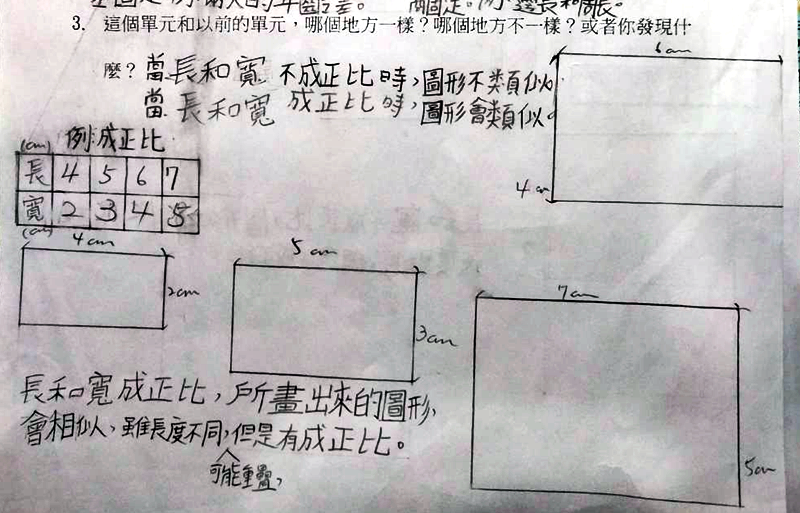 3. 這個單元和以前的單元，哪個地方一樣？哪個地方不一樣？或者你發現什
麼？當長和寬 不成正比時，圖形不類似。
當 長和寬 成正比時，圖形會類似。
例：成正比
(cm)
長 4 5 6 7
寬 2 3 4 5
(cm)
6cm
4cm
4cm
2cm
5cm
3cm
7cm
5cm
長和寬成正比，所畫出來的圖形，
會相似，雖長度不同，但是有成正比。
可能重疊，